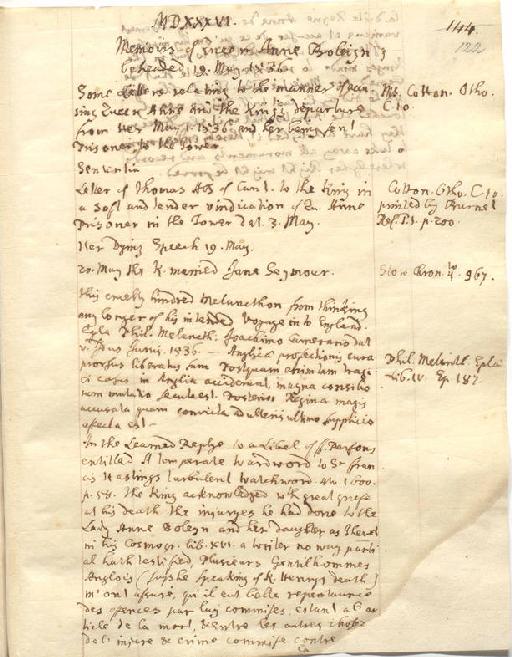 MDXXXVI.
144
122
Memoirs of Queen Anne Boleign
beheaded 19. May 1536
Some letters relating to the manner of
sing Queen Anne and the Kings departure
from her May 1. 1536 and her being sent
Prisoner to the Tower.
Ms. Cotton. Otho.
C. 10
Letter of Thomas ABp of Cant. to the King in
a soft and tender vindication of Q. Anne
Prisoner in the Tower dat. 3. May.
Cotton. Otho. C. 10
printed by Burnet
Ref. P. 1. p. 200.
Her Dying Speech 19. May.
20. May the K. married Jane Seymour.
Stow Chron. 4to. 967.
This cruelty hindred Melancthon from thinking
any longer of his intended Voyage into England.
Epla Phil. Melancth. Joachimo Camerario dat
Junii. 1536 — Anglicæ profectionis cura
prorsus liberatus sum Postquam enim tam tragi
ci casus in Anglia acciderunt, magna consilio
rum mutatio secuta est. Posterior Regina magis
accusata quam convicta adulterii ultimo supplicio
affecta est.
Phil. Melancth. Epla
Lib. IV. Ep. 187.
In the Learned Reply to a Libel of F. Parsons
entitled A temperate Wardword to Sr Fran
cis Hastings turbulent Watchword. 1600.
p. The King acknowledged with great grief
at his death the injuryes he had done to the
Lady Anne Boleyn and her daughter as Thevet
in his Cosmogr. lib. XVI. a writer no way parti
al hath testified, Plusieurs Gentilhommes
Anglois (saythe speaking of K. Henrys death)
m'ont assuré, qu'il eut belle repentance
des offences par luy commises, estant a l'ar
ticle de la mort, & entre les autres choses
de l'injure & crime commise contre
la